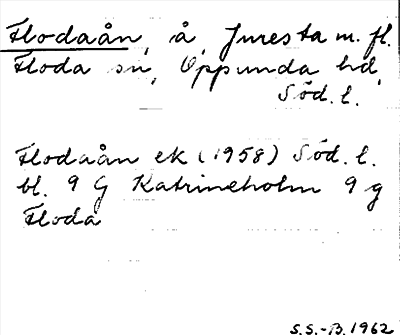 Flodaån, å, Juresta m. fl.
Floda sn, Oppunda hd,
Söd. l.
Flodaån ek (1958) Söd. l.
bl. 9 G Katrineholm 9 g
Floda
S.S.-B. 1962